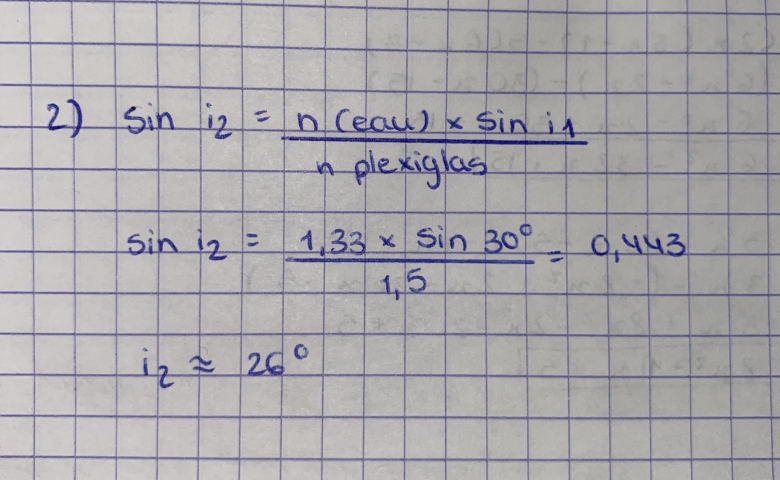 2) sin i2 = n (eau) × sin i1
n plexiglas
sin i2 = 1,33 × sin 30° = 0,443
1,5
i2 ≈ 26°